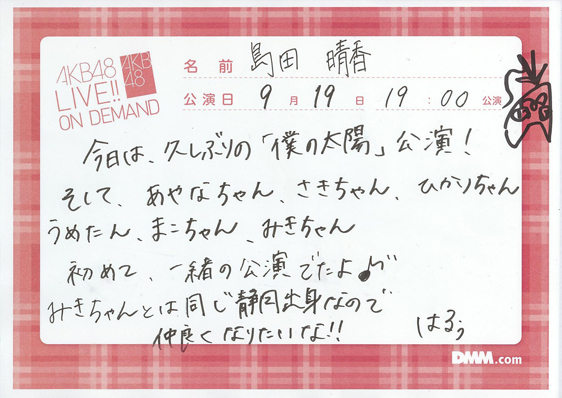 AKB48
LIVE!!
ON DEMAND
AKB
48
名前 島田 晴香
公演日 9月19日 19:00公演
今日は、久しぶりの「僕の太陽」公演!
そして、あやなちゃん、さきちゃん、ひかりちゃん
うめたん、まこちゃん、みきちゃん
初めて、一緒の公演でたよ♪
みきちゃんとは同じ静岡出身なので
仲良くなりたいな!!
はるぅ
DMM.com